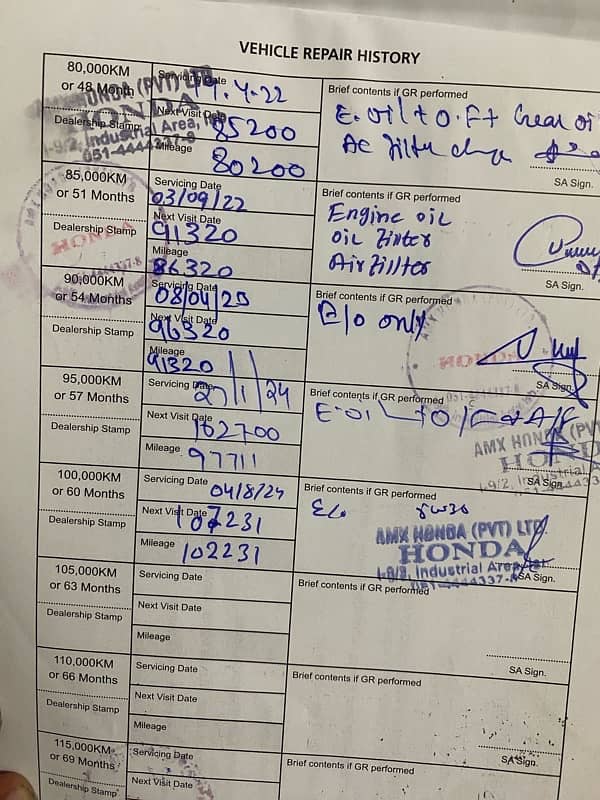 VEHICLE REPAIR HISTORY
80,000KM
or 48 Month
Dealership Stamp
Servicing Date
4.22
Next Visit Date
85200
Mileage
80200
Brief contents if GR performed
E. Oil + O. F+ Gear oil
AC filter change
SA Sign.
HONDA (PVT) LTD
HONDA
I-9/2, Industrial Area,
051-4444337-8
85,000KM
or 51 Months
Dealership Stamp
Servicing Date
03/09/22
Next Visit Date
91320
Mileage
86320
Brief contents if GR performed
Engine oil
oil Filter
Air Fillter
SA Sign.
HONDA
90,000KM
or 54 Months
Dealership Stamp
Servicing Date
08/04/
Next Visit Date
96320
Mileage
91320
Brief contents if GR performed
E/o only
SA Sign.
HONDA
95,000KM
or 57 Months
Dealership Stamp
Servicing Date
27/1/24
Next Visit Date
102700
Mileage
97711
Brief contents if GR performed
E.oil
SA Sign.
AMX HONDA (PVT)
HONDA
I-9/2, Industrial A
100,000KM
or 60 Months
Dealership Stamp
Servicing Date
04/8/24
Next Visit Date
107231
Mileage
102231
Brief contents if GR performed
E/o
AMX HONDA (PVT) LTD.
HONDA
I-9/2, Industrial Area,
4444337-8
SA Sign.
105,000KM
or 63 Months
Dealership Stamp
Servicing Date
Next Visit Date
Mileage
Brief contents if GR performed
SA Sign.
110,000KM
or 66 Months
Dealership Stamp
Servicing Date
Next Visit Date
Mileage
Brief contents if GR performed
SA Sign.
115,000KM
or 69 Months
Dealership Stamp
Servicing Date
Next Visit Date
Brief contents if GR performed